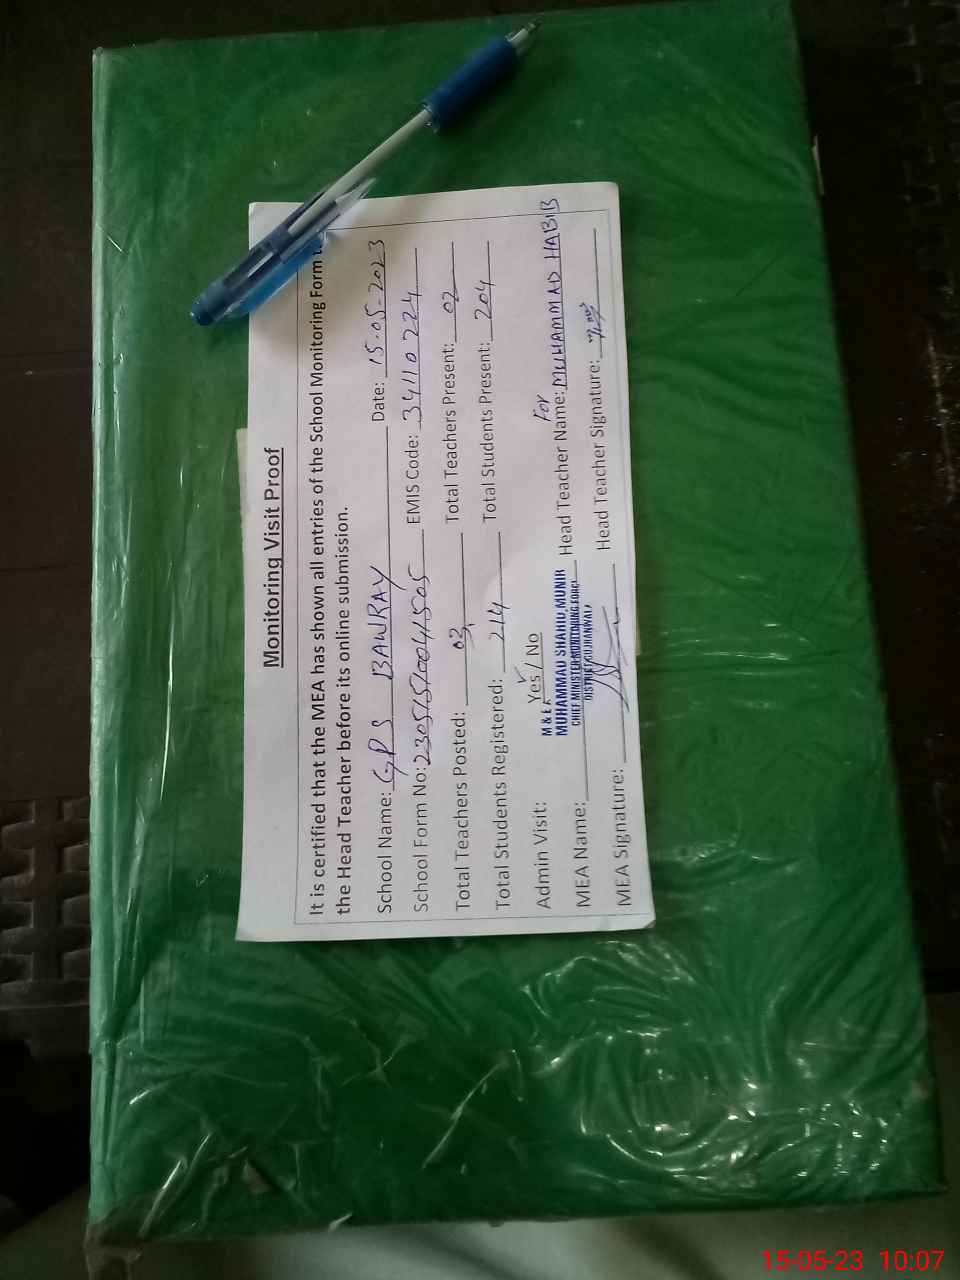 Monitoring Visit Proof
It is certified that the MEA has shown all entries of the School Monitoring Form
the Head Teacher before its online submission.
School Name: GPS BAWRAY Date: 15-05-2023
School Form No: 23051510041505 EMIS Code: 34110224
Total Teachers Posted: 03 Total Teachers Present: 02
Total Students Registered: 214 Total Students Present: 204
Admin Visit: Yes / No
For
M & E
MEA Name: MUHAMMAD SHAHID MUNIR Head Teacher Name: MUHAMMAD HABIB
CHIEF MINISTER MONITORING FORCE
DISTRICT GUJRANWALA
MEA Signature: Head Teacher Signature:
15-05-23 10:07